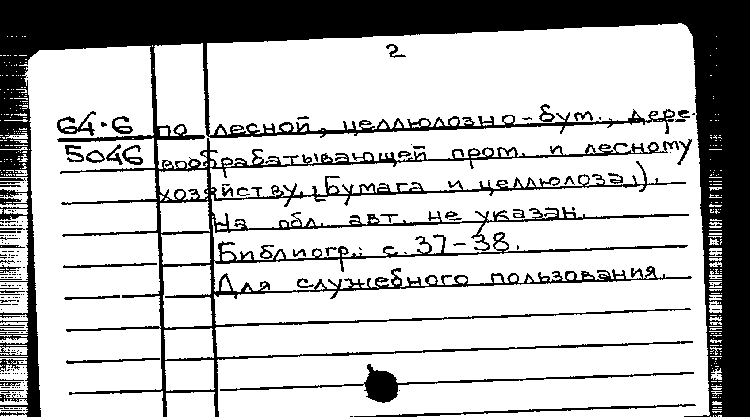 2
64·6 по лесной, целлюлозно-бум., дере-
5046 вообрабатывающей пром. и лесному
хозяйству. [Бумага и целлюлоза]).
На обл. авт. не указан.
Библиогр.: с. 37-38.
Для служебного пользования.